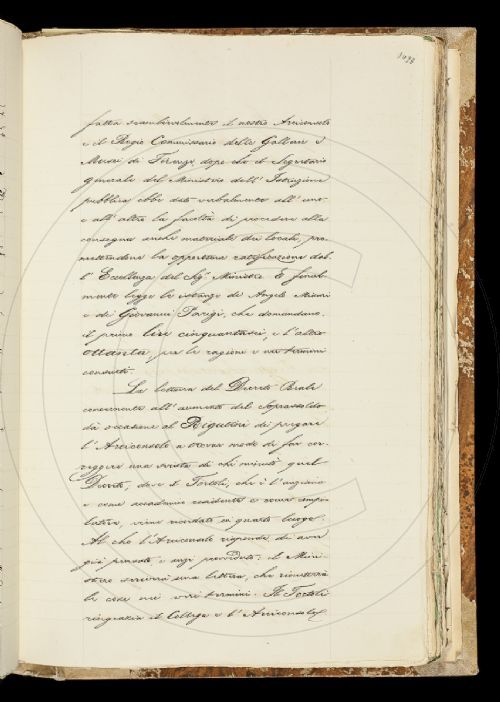 1098
fatta scambievolmente il nostro Arciconsolo
e il Regio Commissario delle Gallerie e
Musei di Firenze, dopo che il Segretario
generale del Ministero dell' Istruzione
pubblica ebbe dato verbalmente all' uno
e all' altro la facoltà di procedere alla
consegna anche materiale dei locali, pro-
mettendone la opportuna ratificazione del-
l' Eccellenza del Sig. Ministro. E final-
mente legge le istanze di Angelo
e di Giovanni Parigi, che domandano,
il primo lire cinquantasei, e l' altro
ottanta, per le ragioni e nei termini
consueti.
La lettura del Decreto Reale
concernente all' aumento del Soprassoldo
dà occasione al Rigutini di pregare
l' Arciconsolo a trovar modo di far cor-
reggere una svista di che quel
Decreto, dove il Tortoli, che è l' anziano
e come accademico residente e come compi-
latore, viene ricordato in quarto luogo.
Al che l' Arciconsolo risponde di aver
già pensato e anzi provveduto: il Mini-
stero scriverà una lettera, che rimetterà
le cose nei veri termini. Il Tortoli
ringrazia il Collega e l' Arciconsolo,